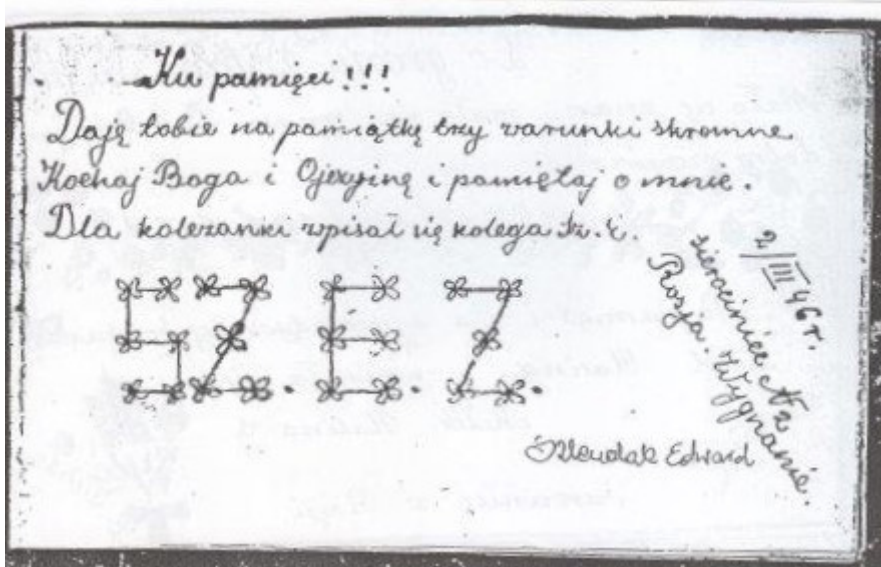 Ku pamięci!!!
Daję tobie na pamiątkę trzy warunki skromne
Kochaj Boga i Ojczyznę i pamiętaj o mnie.
Dla koleżanki wpisał się kolega
SZ. E. Z.
2/III 46 r.
sierociniec № 2
Rosja. Wygnanie.
Edward